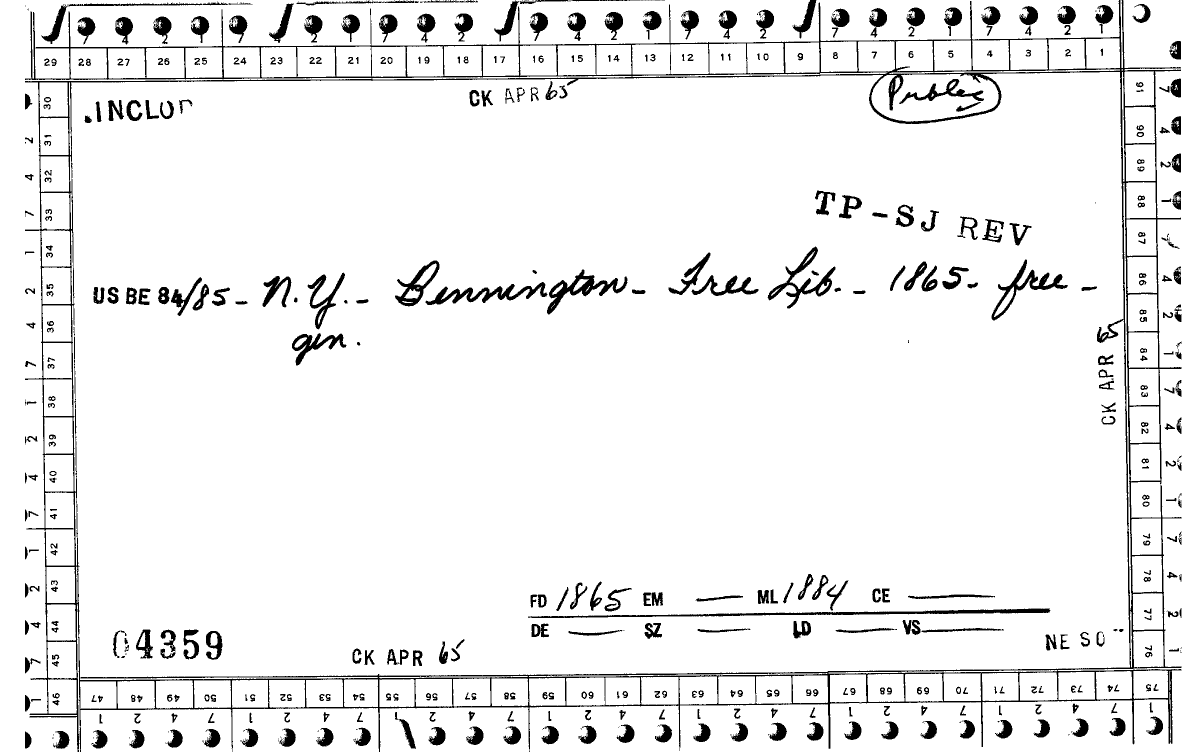 7 4 2 1 7 4 2 1 7 4 2 1 7 4 2 1 7 4 2 1 7 4 2 1
29 28 27 26 25 24 23 22 21 20 19 18 17 16 15 14 13 12 11 10 9 8 7 6 5 4 3 2 1
.INCLOP
CK APR 65
Public
TP-SJ REV
US BE 84/85 - N.Y. - Bennington - Free Lib. - 1865 - free -
gen.
CK APR 65
FD 1865 EM — ML 1884 CE —
DE — SZ — LD — VS —
04359
CK APR 65
NE SO
30 31 32 33 34 35 36 37 38 39 40 41 42 43 44 45 46
91 90 89 88 87 86 85 84 83 82 81 80 79 78 77 76
47 48 49 50 51 52 53 54 55 56 57 58 59 60 61 62 63 64 65 66 67 68 69 70 71 72 73 74 75